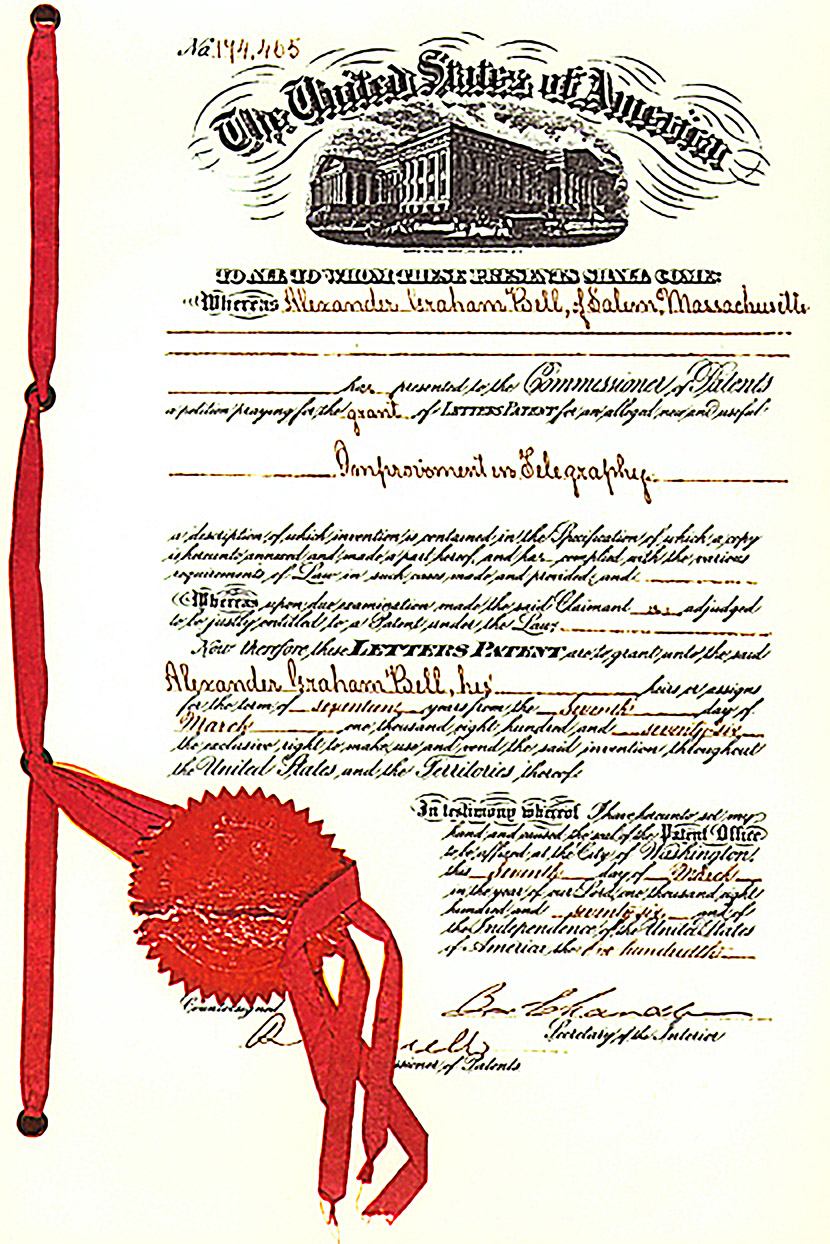 No. 174,465
The United States of America
TO ALL TO WHOM THESE PRESENTS SHALL COME:
Whereas Alexander Graham Bell, of Salem, Massachusetts
has presented to the Commissioner of Patents
a petition praying for the grant of LETTERS PATENT for an alleged new and useful
Improvement in Telegraphy
a description of which invention is contained in the Specification of which a copy
is hereunto annexed and made a part hereof, and has complied with the various
requirements of Law in such cases made and provided; and
Whereas upon due examination made the said Claimant is adjudged
to be justly entitled to a Patent under the Law;
Now therefore these LETTERS PATENT are to grant unto the said
Alexander Graham Bell, his heirs or assigns
for the term of seventeen years from the seventh day of
March one thousand eight hundred and seventy-six
the exclusive right to make use and vend the said invention throughout
the United States and the Territories thereof.
In testimony whereof I have hereunto set my
hand and caused the seal of the Patent Office
to be affixed at the City of Washington
this seventh day of March
in the year of our Lord one thousand eight
hundred and seventy-six and of
the Independence of the United States
of America the one hundredth.
Countersigned
Secretary of the Interior
of Patents